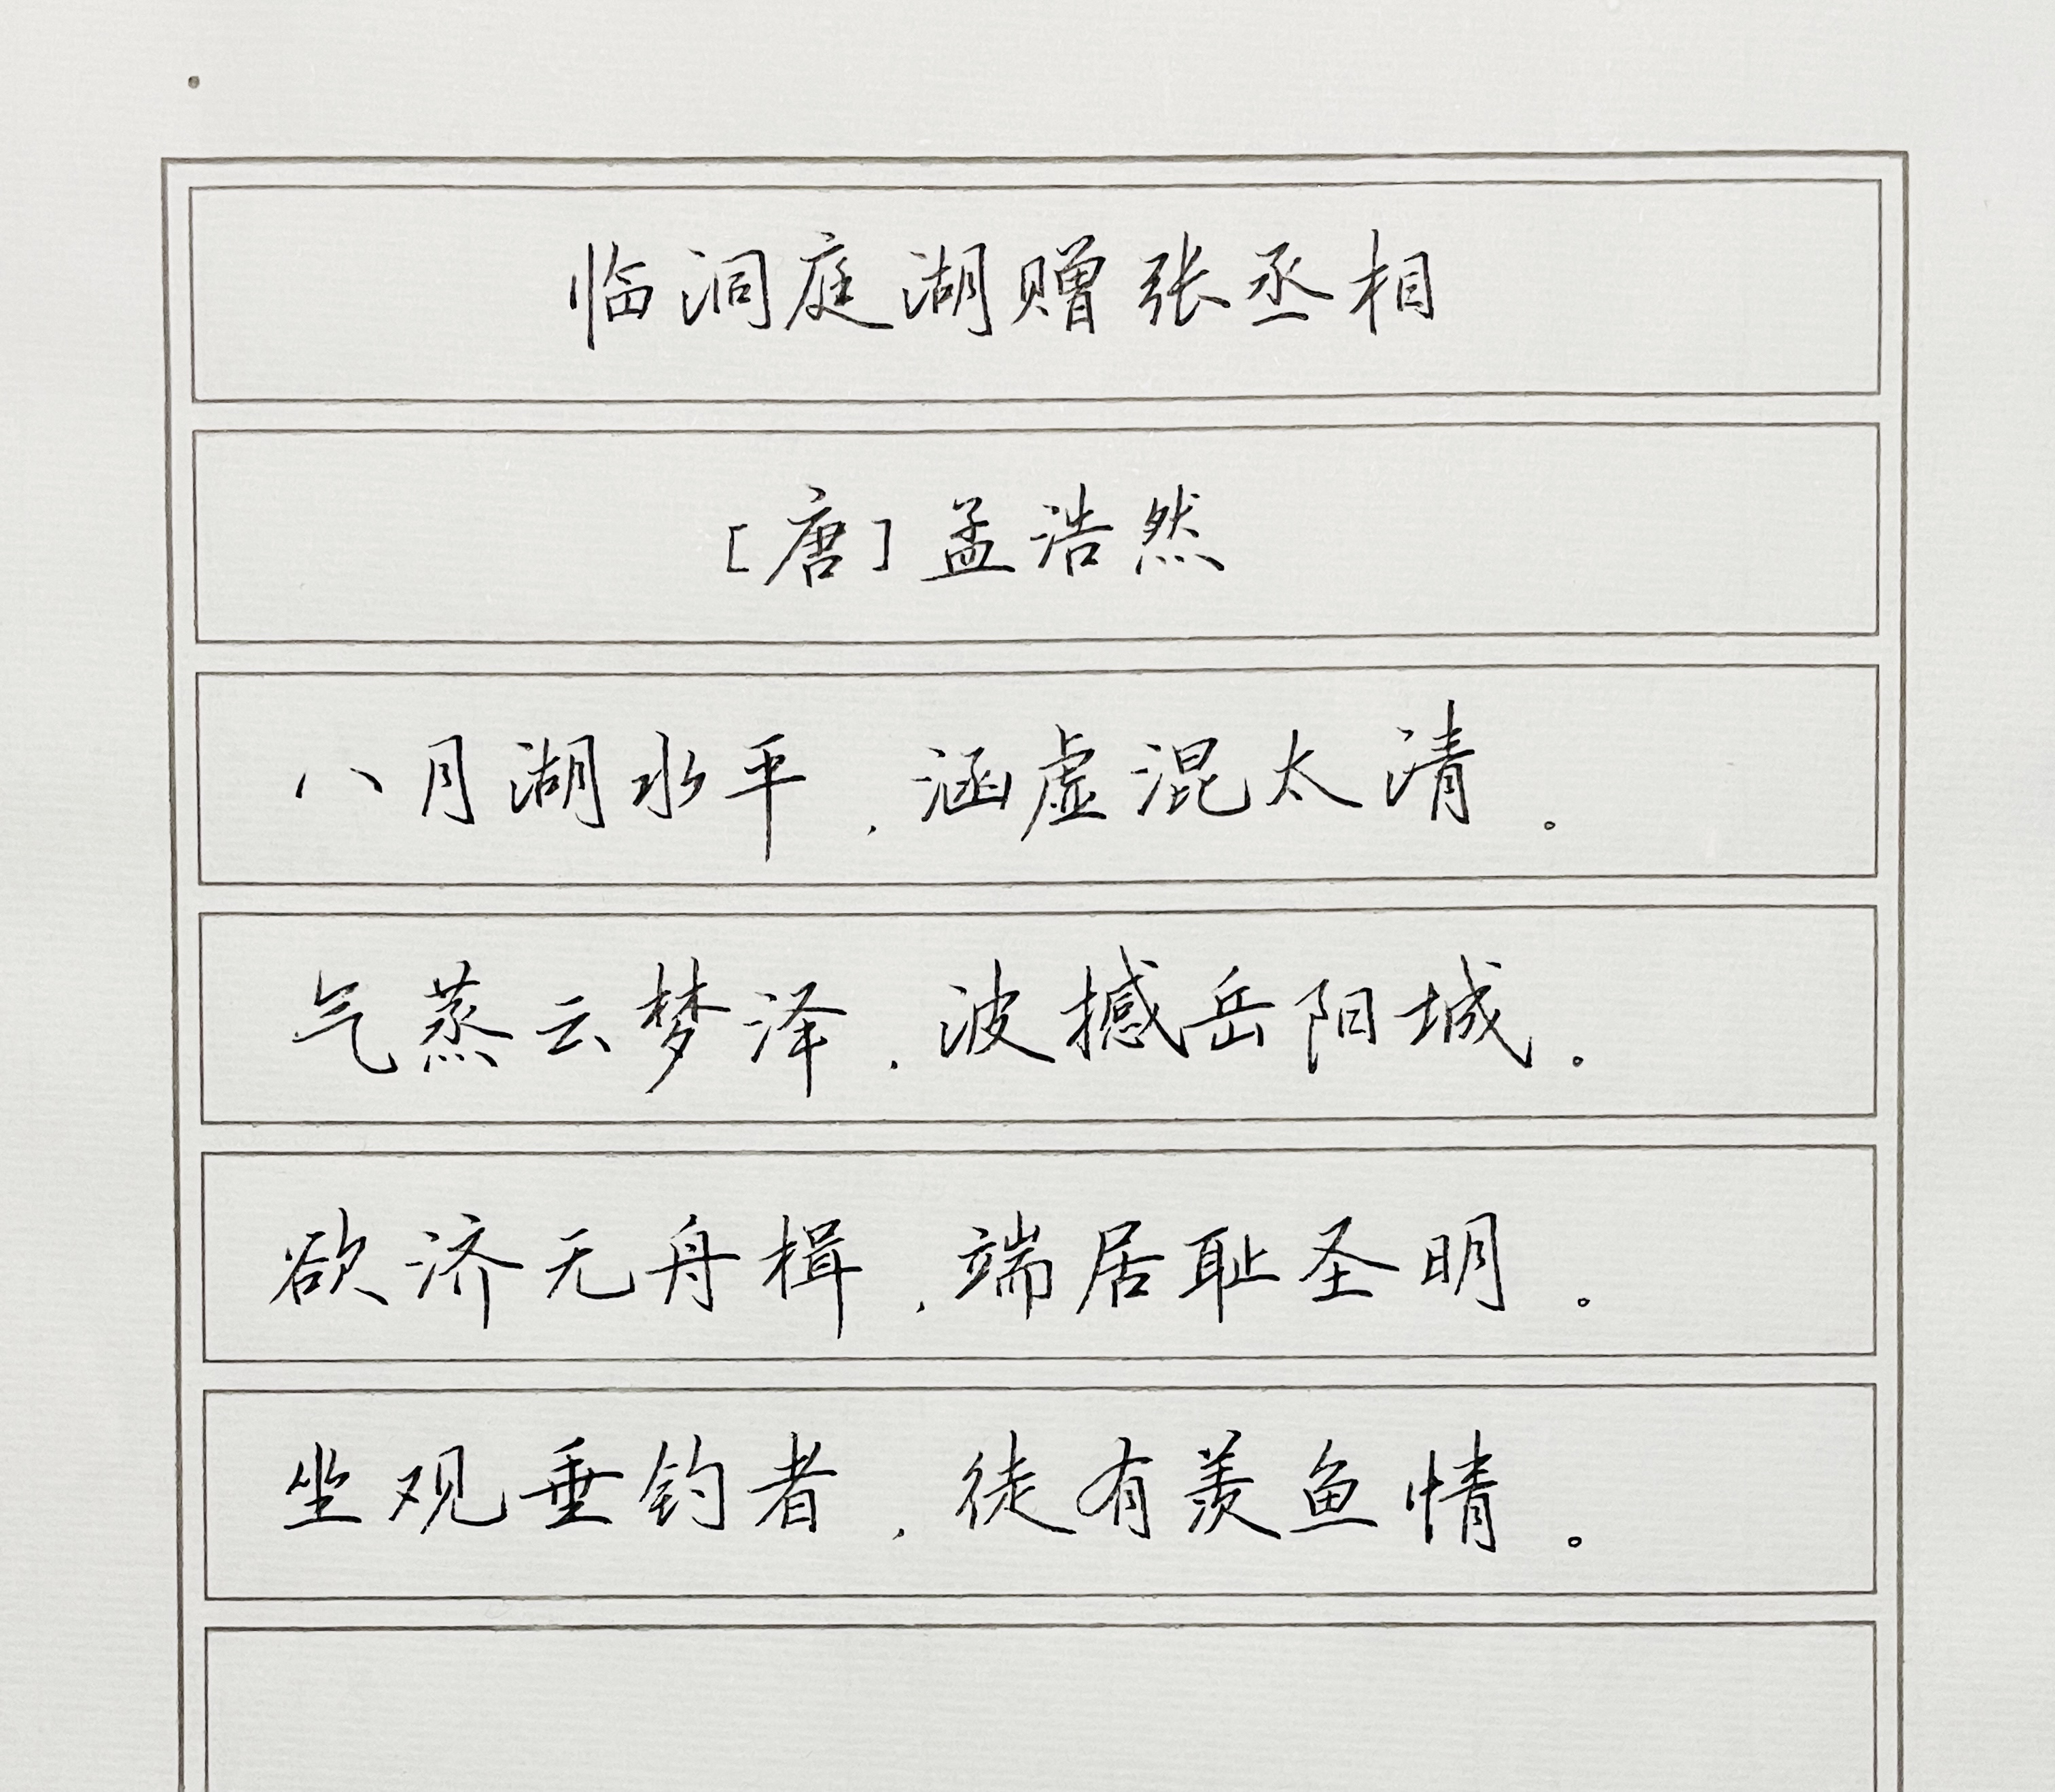 临洞庭湖赠张丞相
[唐]孟浩然
八月湖水平，涵虚混太清。
气蒸云梦泽，波撼岳阳城。
欲济无舟楫，端居耻圣明。
坐观垂钓者，徒有羡鱼情。